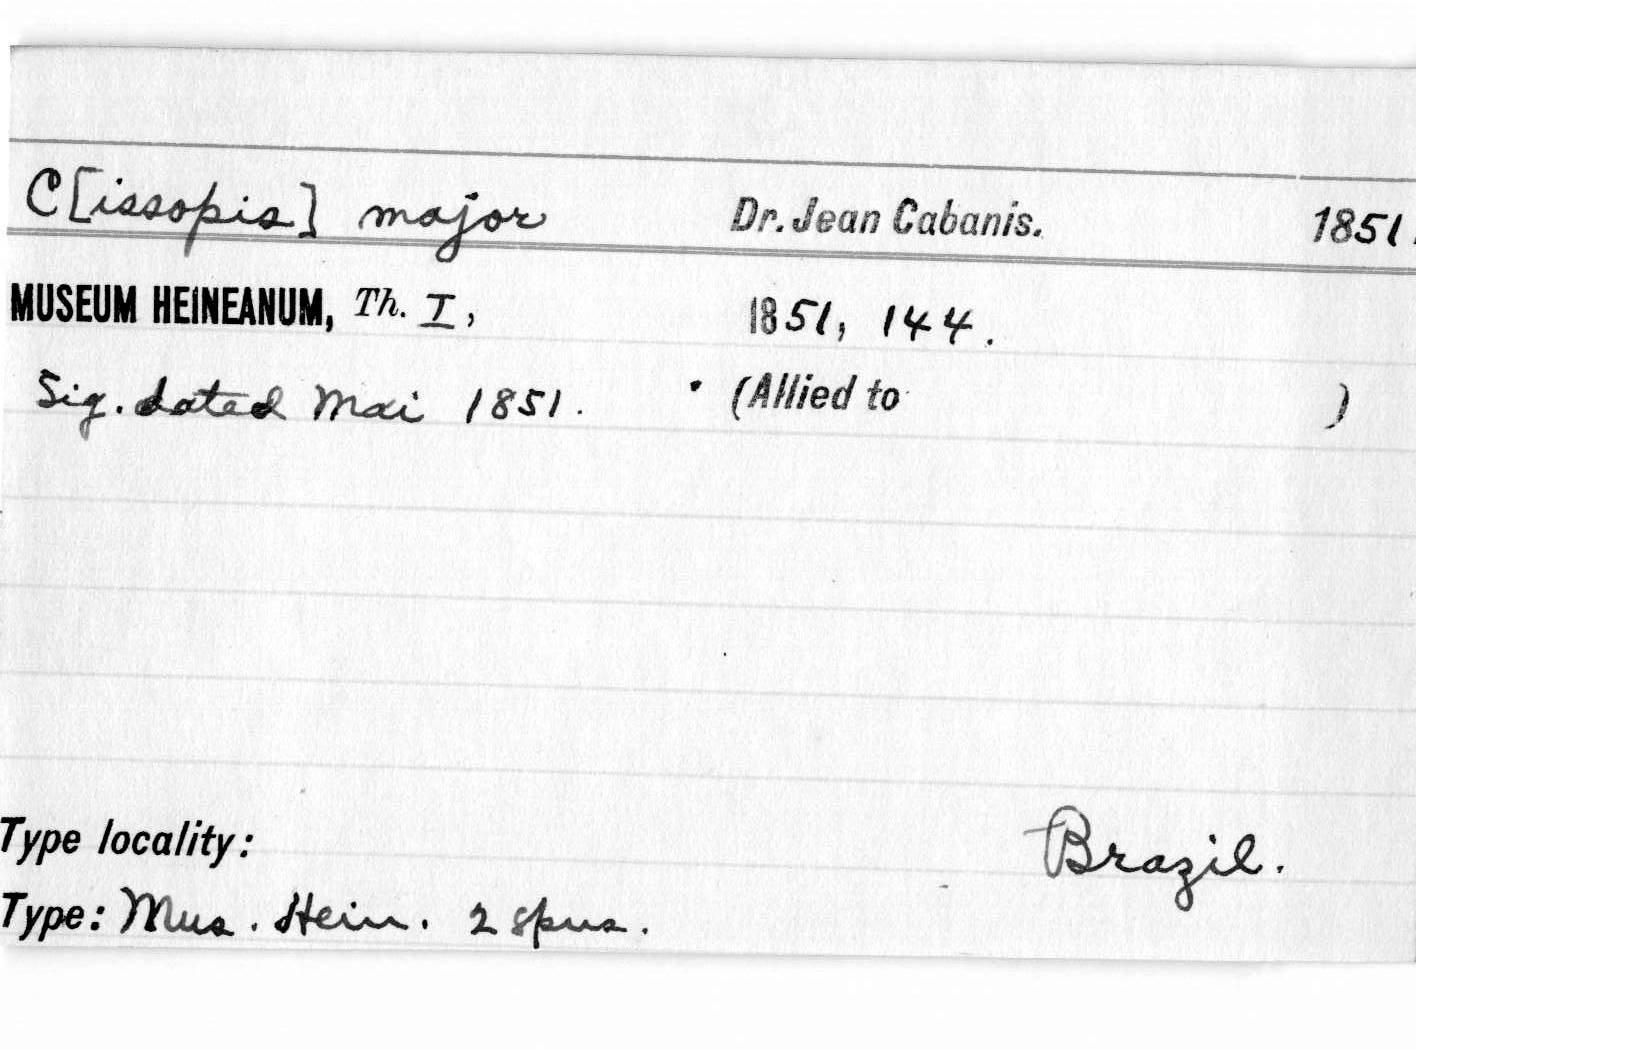 C[issopis] major Dr. Jean Cabanis. 1851.
MUSEUM HEINEANUM, Th. I, 1851, 144.
Sig. dated Mai 1851. (Allied to )
Type locality: Brazil.
Type: Mus. Hein. 2 spns.